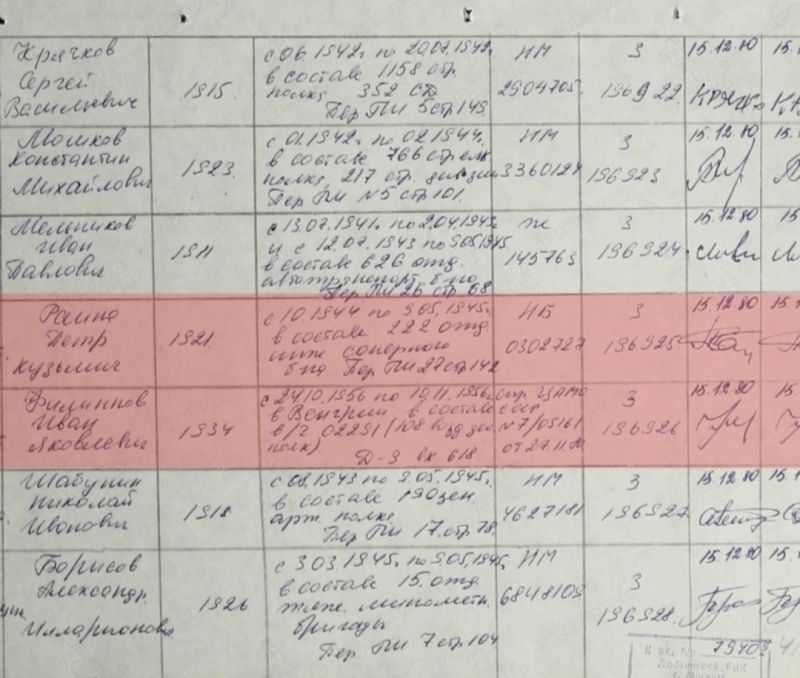 Крячков Сергей Васильевич 1915 с 06.1942г по 20.07.1942г. в составе 1158 стр. полка 352 сд Пер ПИ 5 стр 149 НМ 2904705. 3 196922 15.12.80
Мошков Константин Михайлович 1923 с 01.1942г. по 02.1944. в составе 766 стрелк полка, 217 стр. Пер ПИ №5 стр 101 НМ 3360124 3 196923 15.12.80
Мельников Иван Павлович 1911 с 13.07.1941г по 2.04.1943г и с 12.07.1943 по 9.05.1945 в составе 626 отд. автотранспорт. б-на Пер ПИ 26 стр 68 145763 3 196924 15.12.80
Петр Кузьмич 1921 с 10.1944 по 9.05.1945г. в составе 222 отд. инж саперного б-на Пер ПИ 27 стр 142 НБ 0302727 3 196925 15.12.80
Филиппов Иван Яковлевич 1934 с 24.10.1956 по 10.11.1956г. в Венгрии в составе в/ч 02291 (108 полк) Д-9 вх 618 спр. ЦАМО СССР №7/05161 от 27.11.80 3 196926 15.12.80
Шабунин Николай Иванович 1918 с 08.1943 по 9.05.1945г. в составе 190 зен. арт. полка Пер ПИ 17 стр 78 НМ 4627181 3 196927 15.12.80
Борисов Александр Илларионович 1926 с 3.03.1945г. по 9.05.1945г. в составе 15 отд. тяж. минометн. бригады Пер ПИ 7 стр 104 НМ 6848109 3 196928 15.12.80
К вх. № 79403